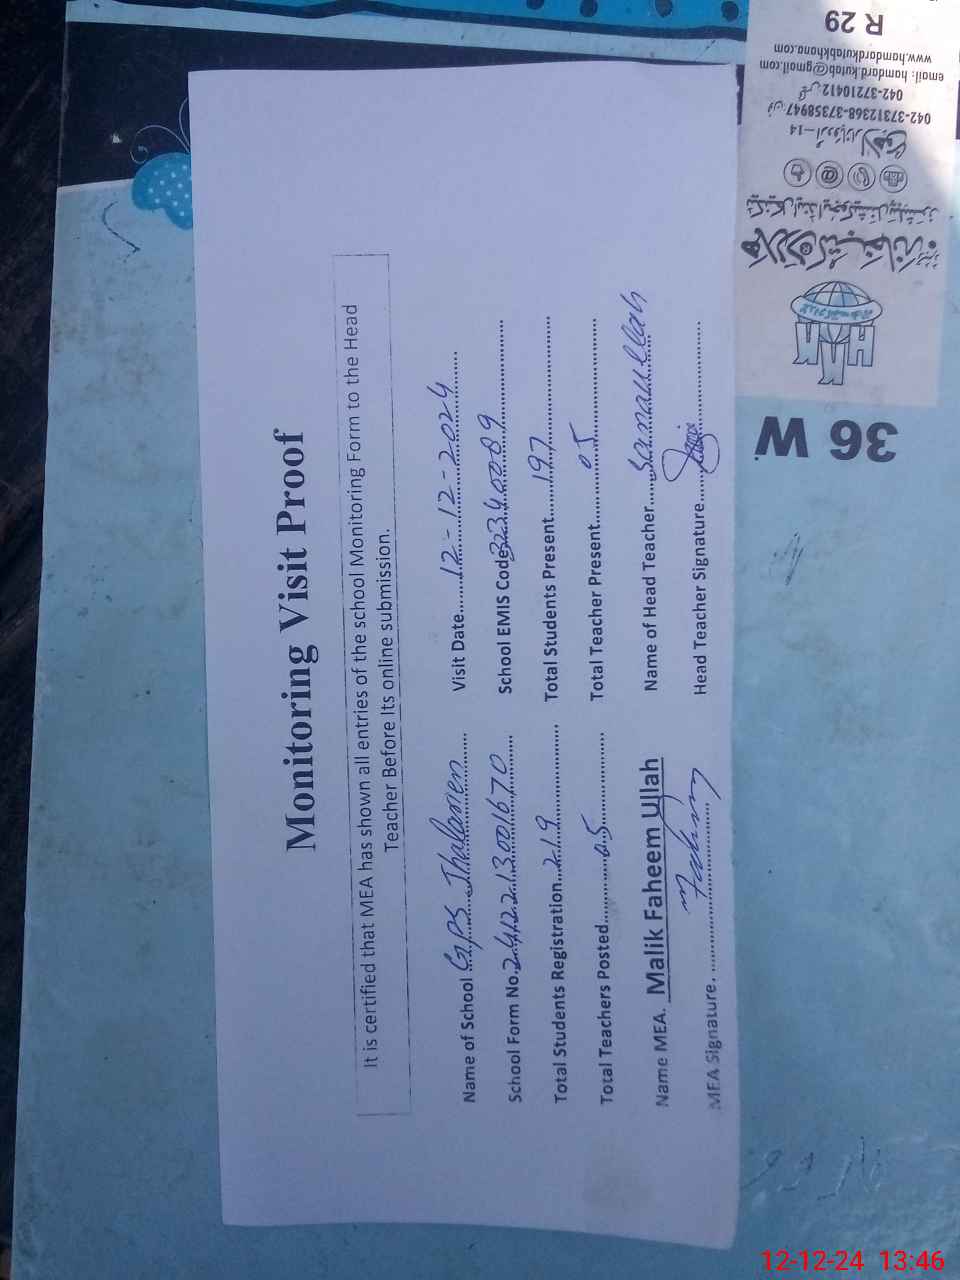 Monitoring Visit Proof
It is certified that MEA has shown all entries of the school Monitoring Form to the Head
Teacher Before Its online submission.
Name of School GPS Thalanen Visit Date 12-12-2024
School Form No. 2412213001670 School EMIS Code 32340089
Total Students Registration 219 Total Students Present 197
Total Teachers Posted 05 Total Teacher Present 05
Name MEA. Malik Faheem Ullah Name of Head Teacher Sanaullah
MEA Signature. Faheem Head Teacher Signature
R 29
www.hamdardkutabkhana.com
email: hamdard.kutab@gmail.com
042-37210412
042-37312368-37358947
HKK
36 W
12-12-24 13:46